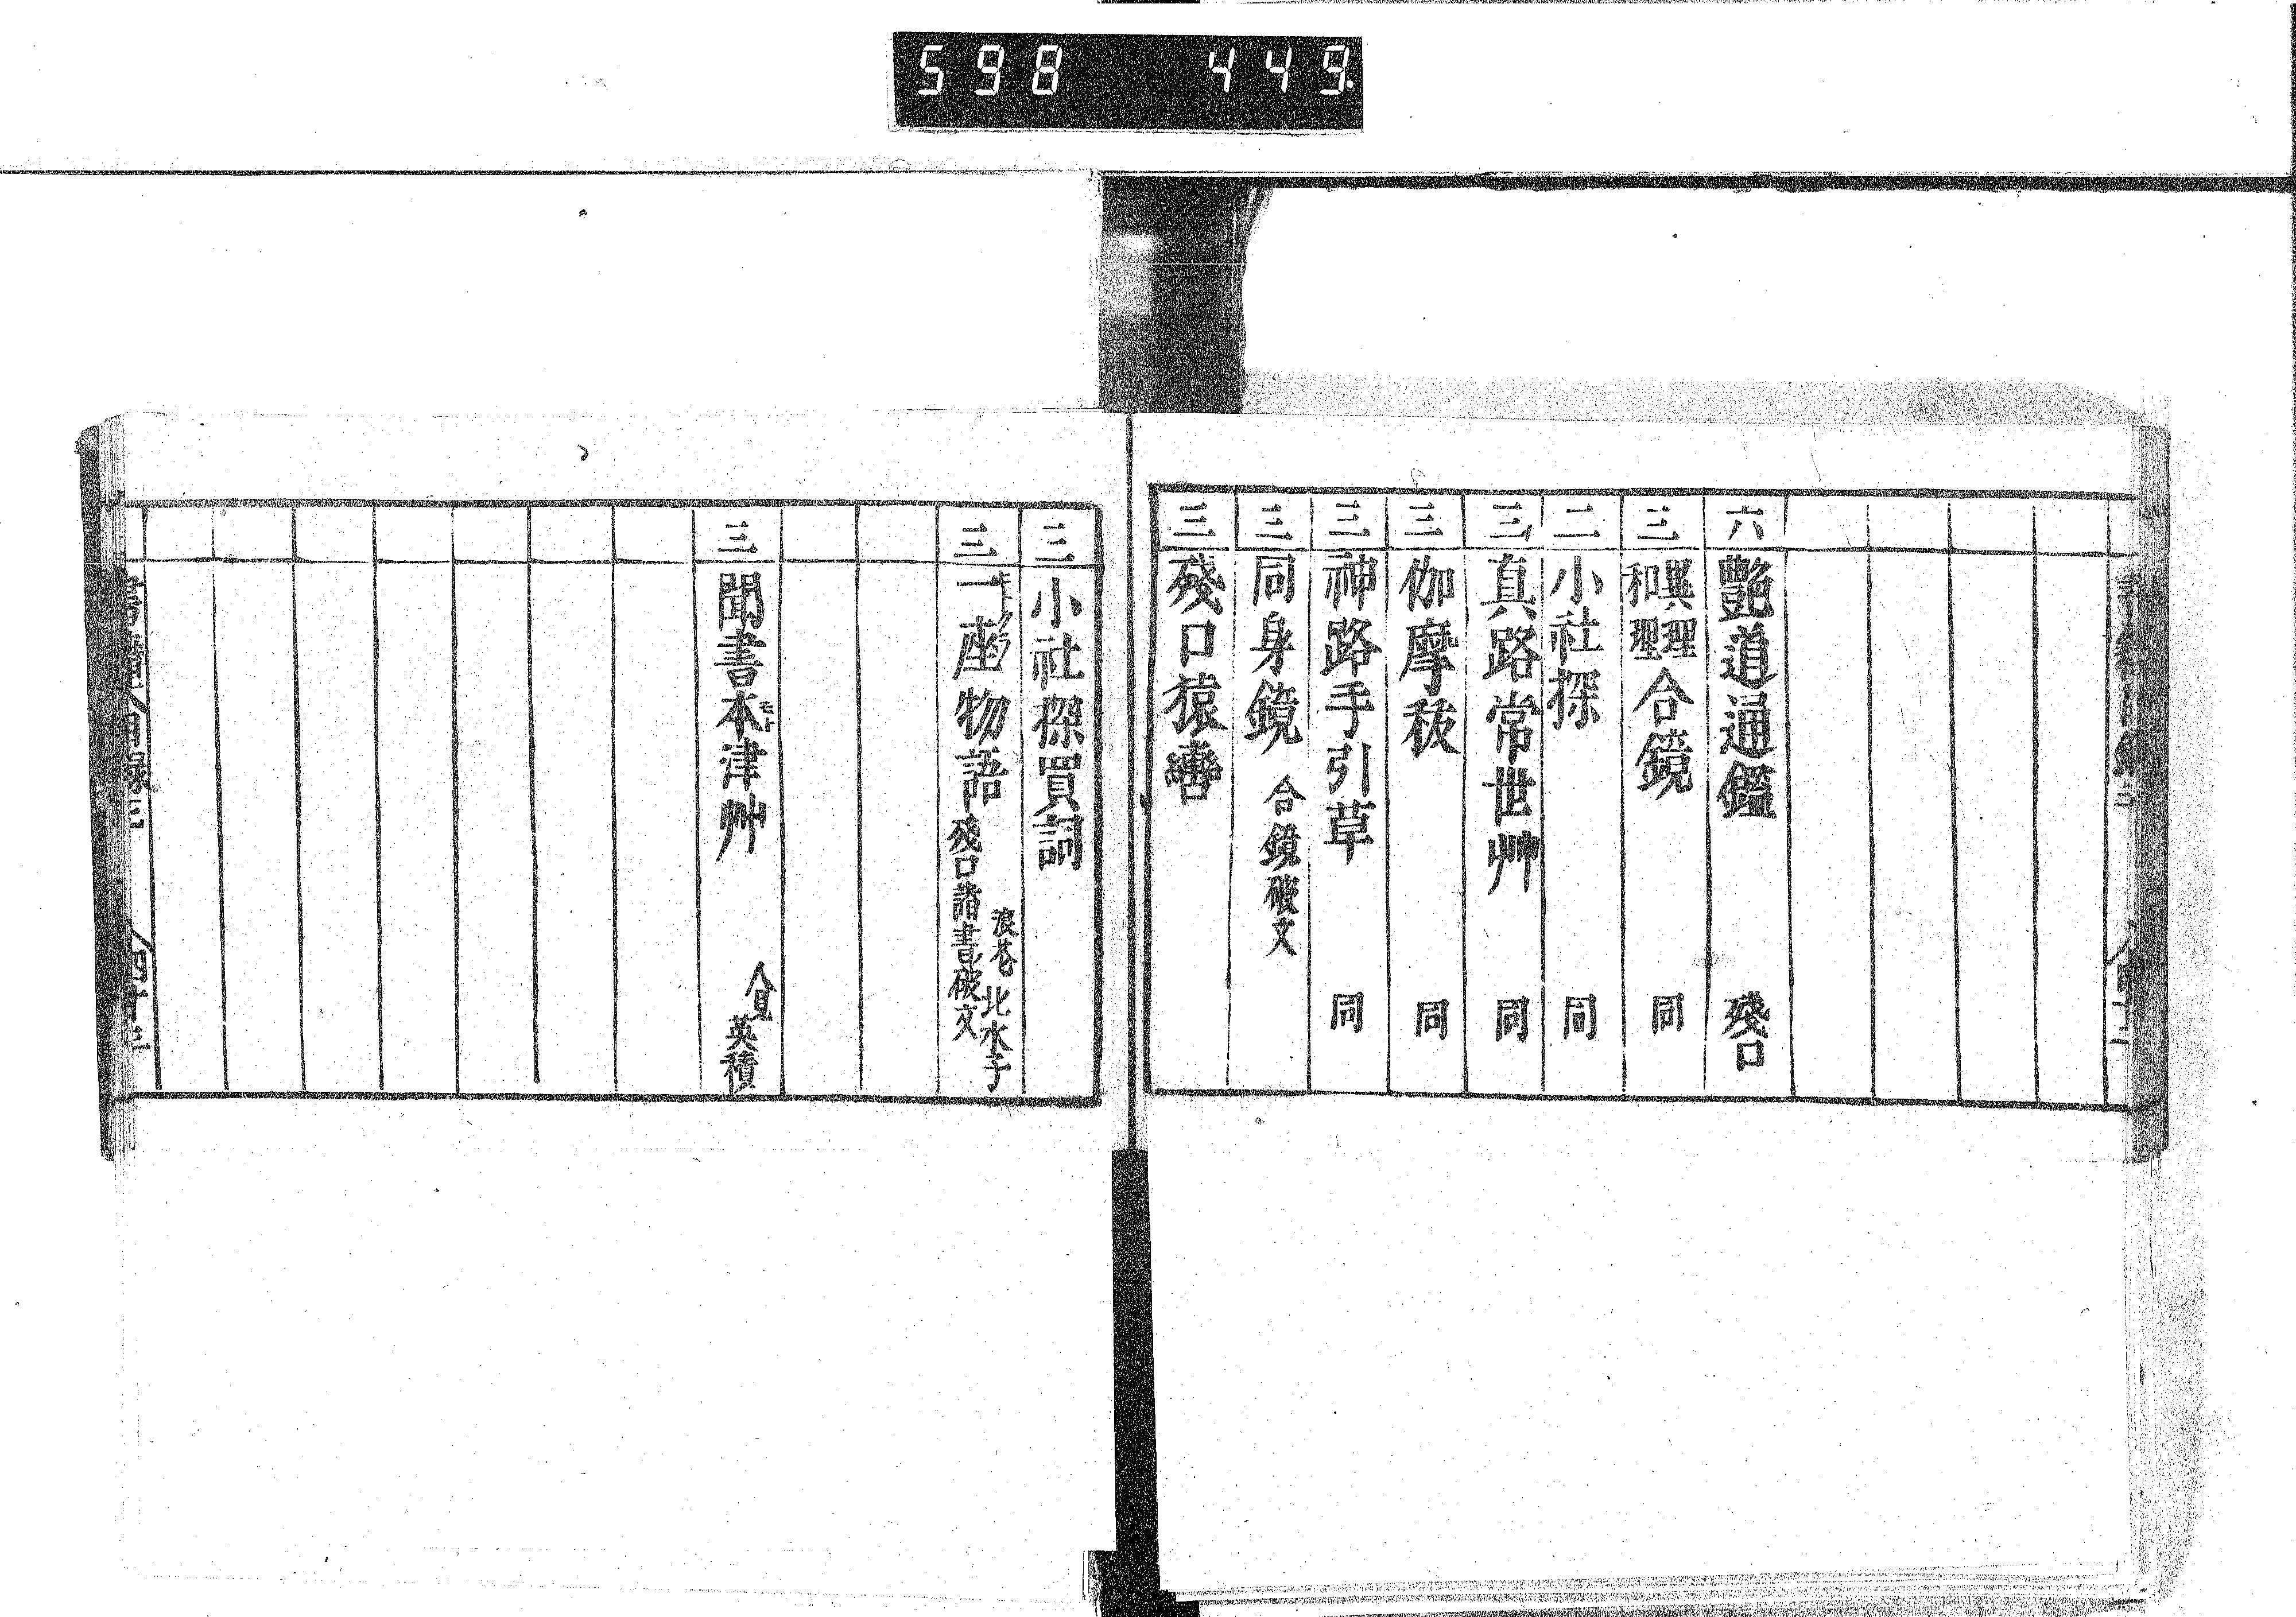 598 449.
六 艶道通鑑 殘口
三 異理和理合鏡 同
二 小社探 同
三 真路常世艸 同
三 伽摩秡 同
三 神路手引草 同
三 同身鏡 合鏡破文
三 殘口猿轡
三 小社探買詞
三 一座物語 浪花 北水子 殘口諸書破文
三 聞書本津艸 人見英積
モト
書籍目録三